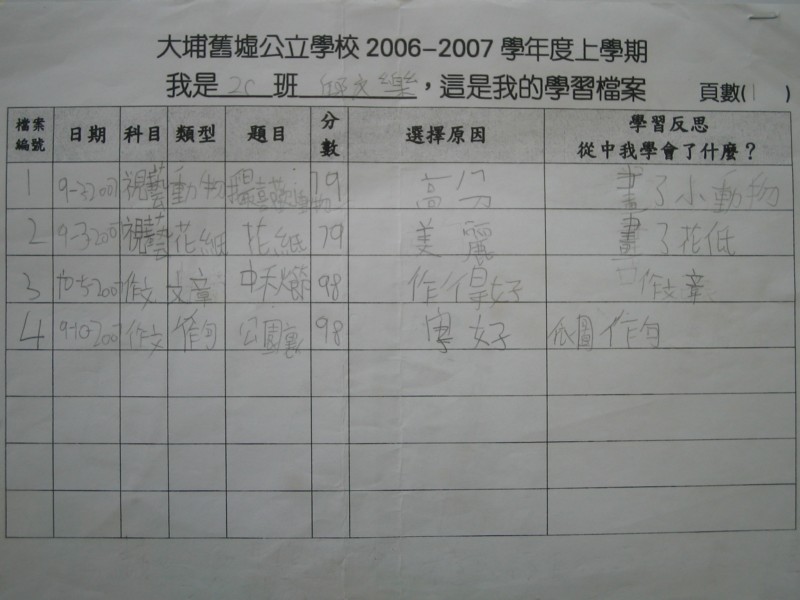 大埔舊墟公立學校 2006-2007 學年度上學期
我是 2C 班 樂，這是我的學習檔案 頁數(1)
檔案編號 日期 科目 類型 題目 分數 選擇原因 學習反思 從中我學會了什麼？
1 視藝 動物 79 高分 畫了小動物
2 9-3-2007 視藝 花紙 花紙 79 美麗 畫了花低
3 10-5-2007 作文 文章 中秋節 98 作得好 作文章
4 9-10-2007 作文 作句 公園裏 98 寫好 依圖作句